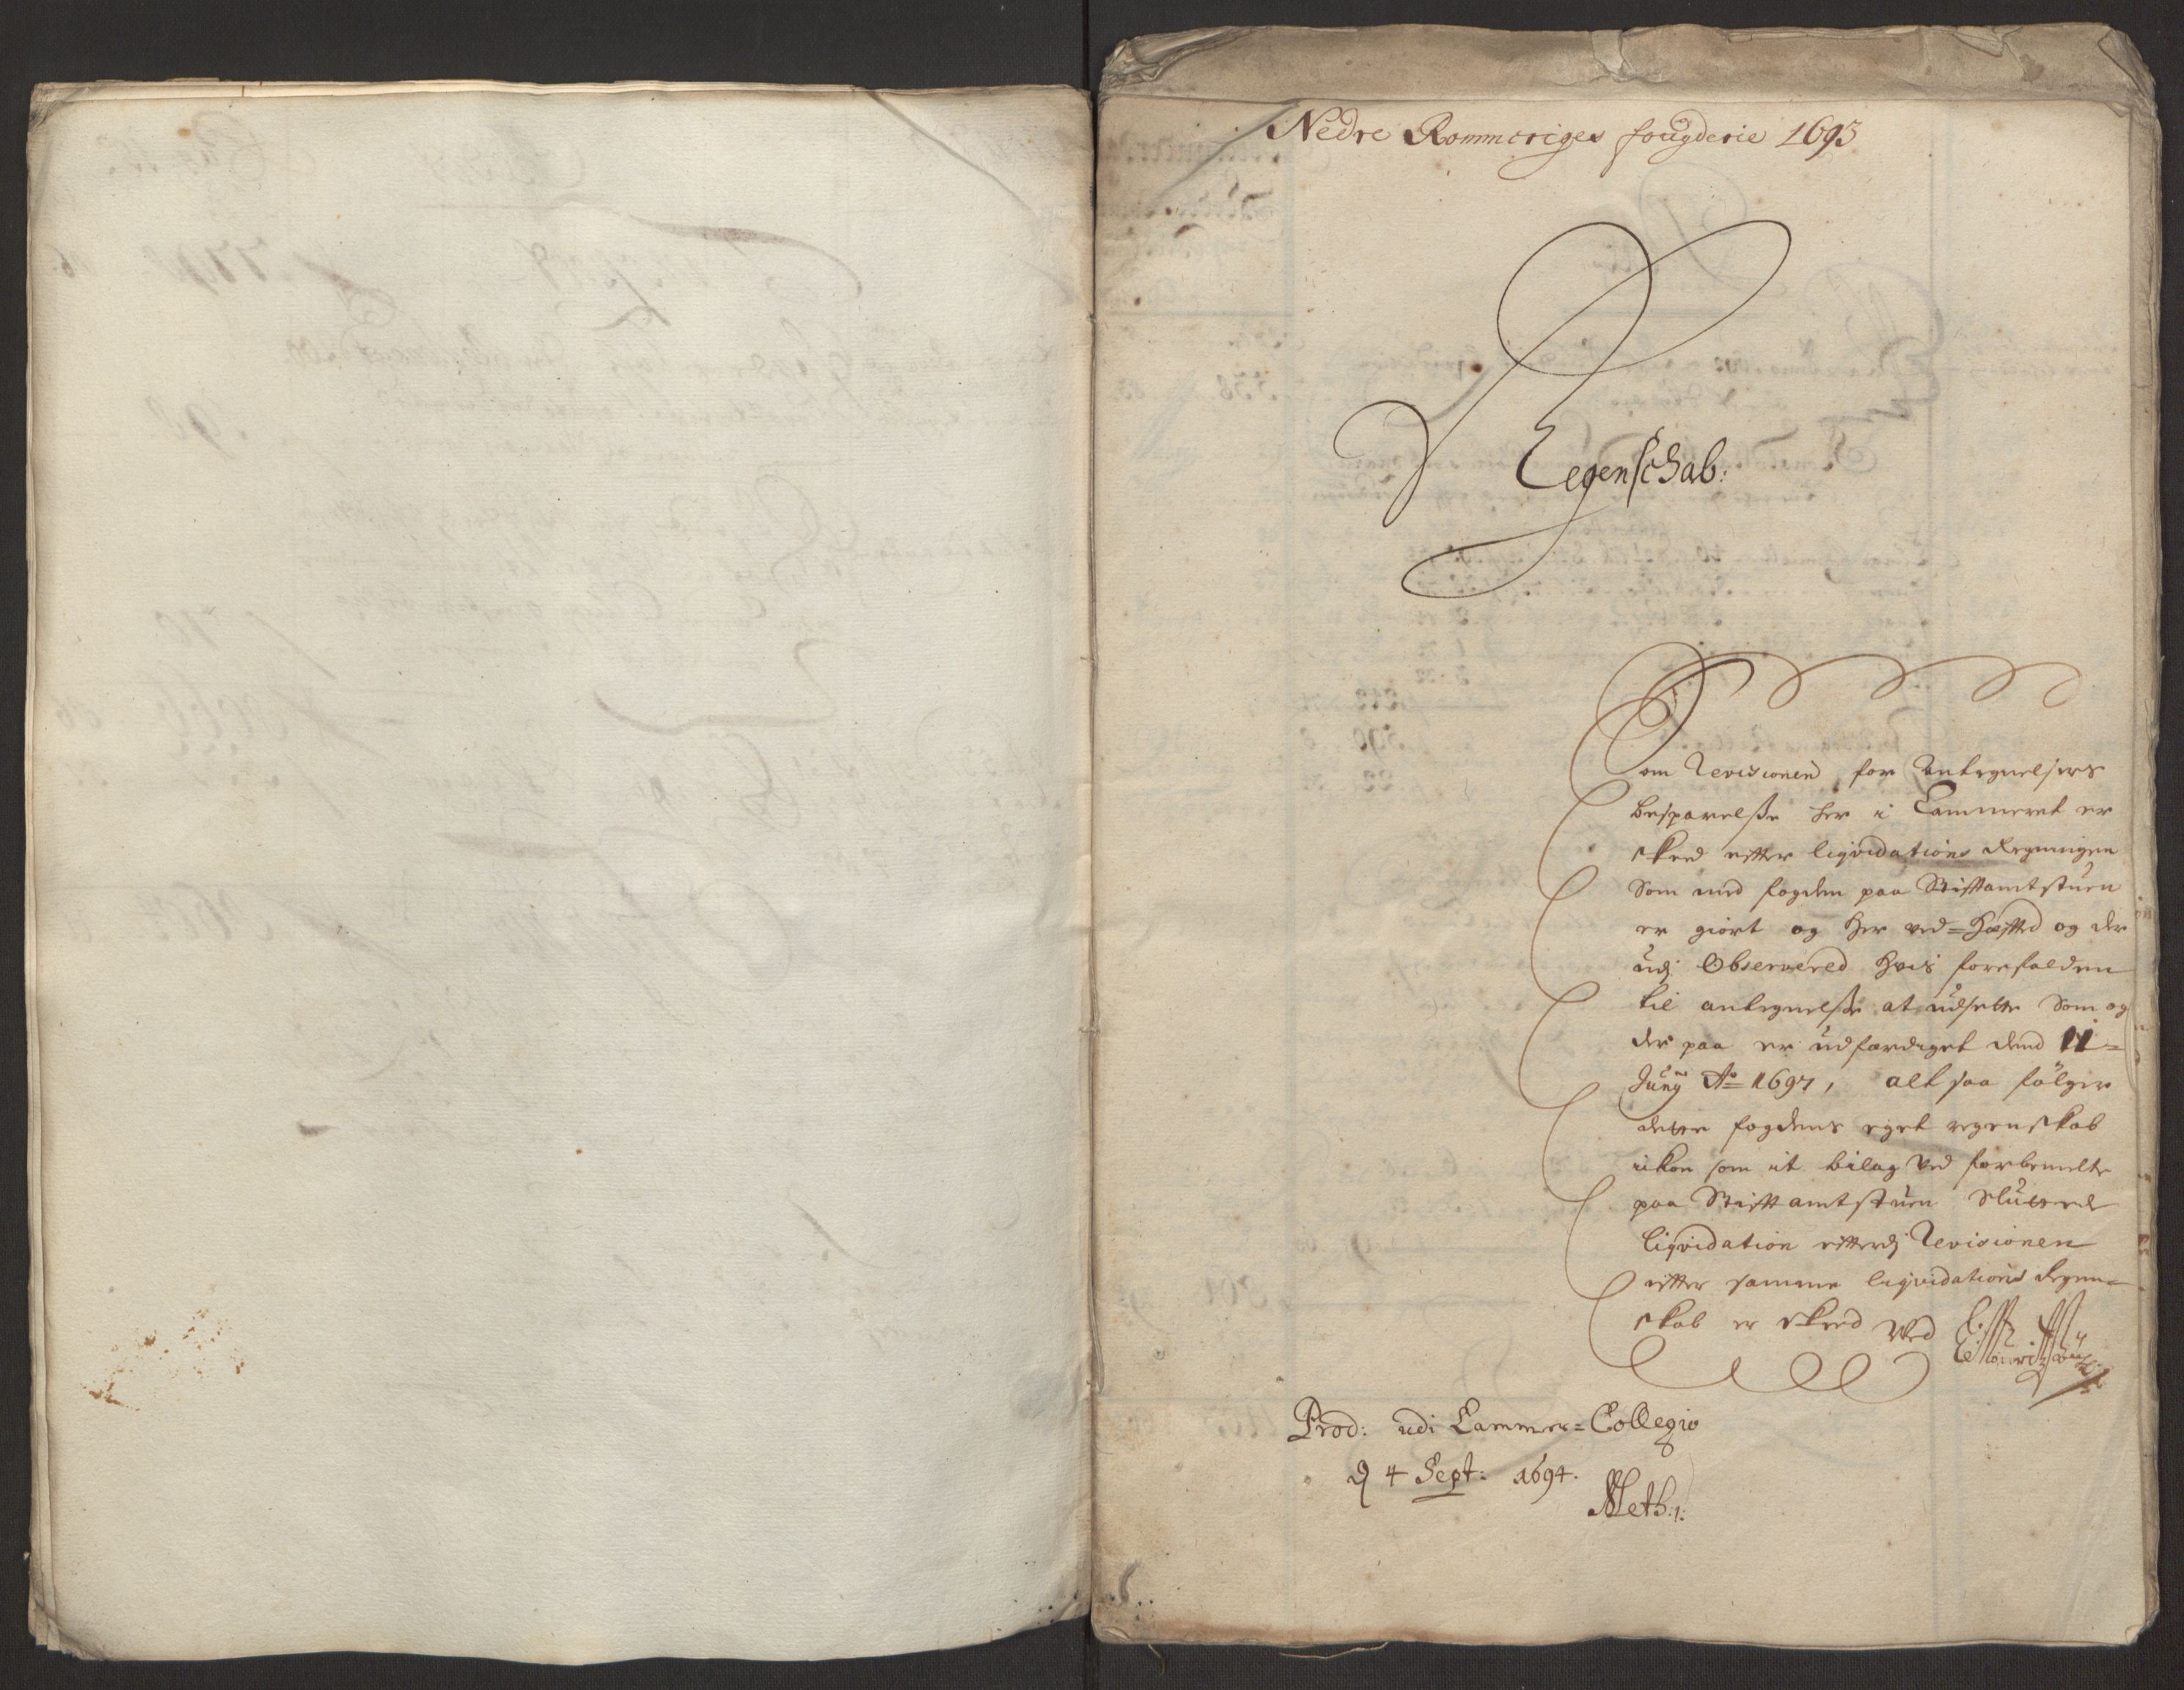 Nedre Rommeriges fougderie 1693
Regenschab:
Som Revisionen for Antegnelsers
besparelsse her i Cammeret er
skeed effter liqvidations Regningen
som med fogden paa Stifftamtstuen
er giort og her ved=hæfftet og der
udj Observered hvis forefalden
til antegnelsse at udsette Som og
der paa er udfærdiget dend 11=
Junij Ao 1697, alt saa følger
dette fogdens eget regenskab
ikon som it bilag ved forbemelte
paa Stifftamtstuen Sluttede
liqvidation effterdj Revisionen
effter samme liqvidations Regen=
skab er skeed Ved
Prod: udi Cammer=Collegio
d 4 Sept: 1694.
Meth: